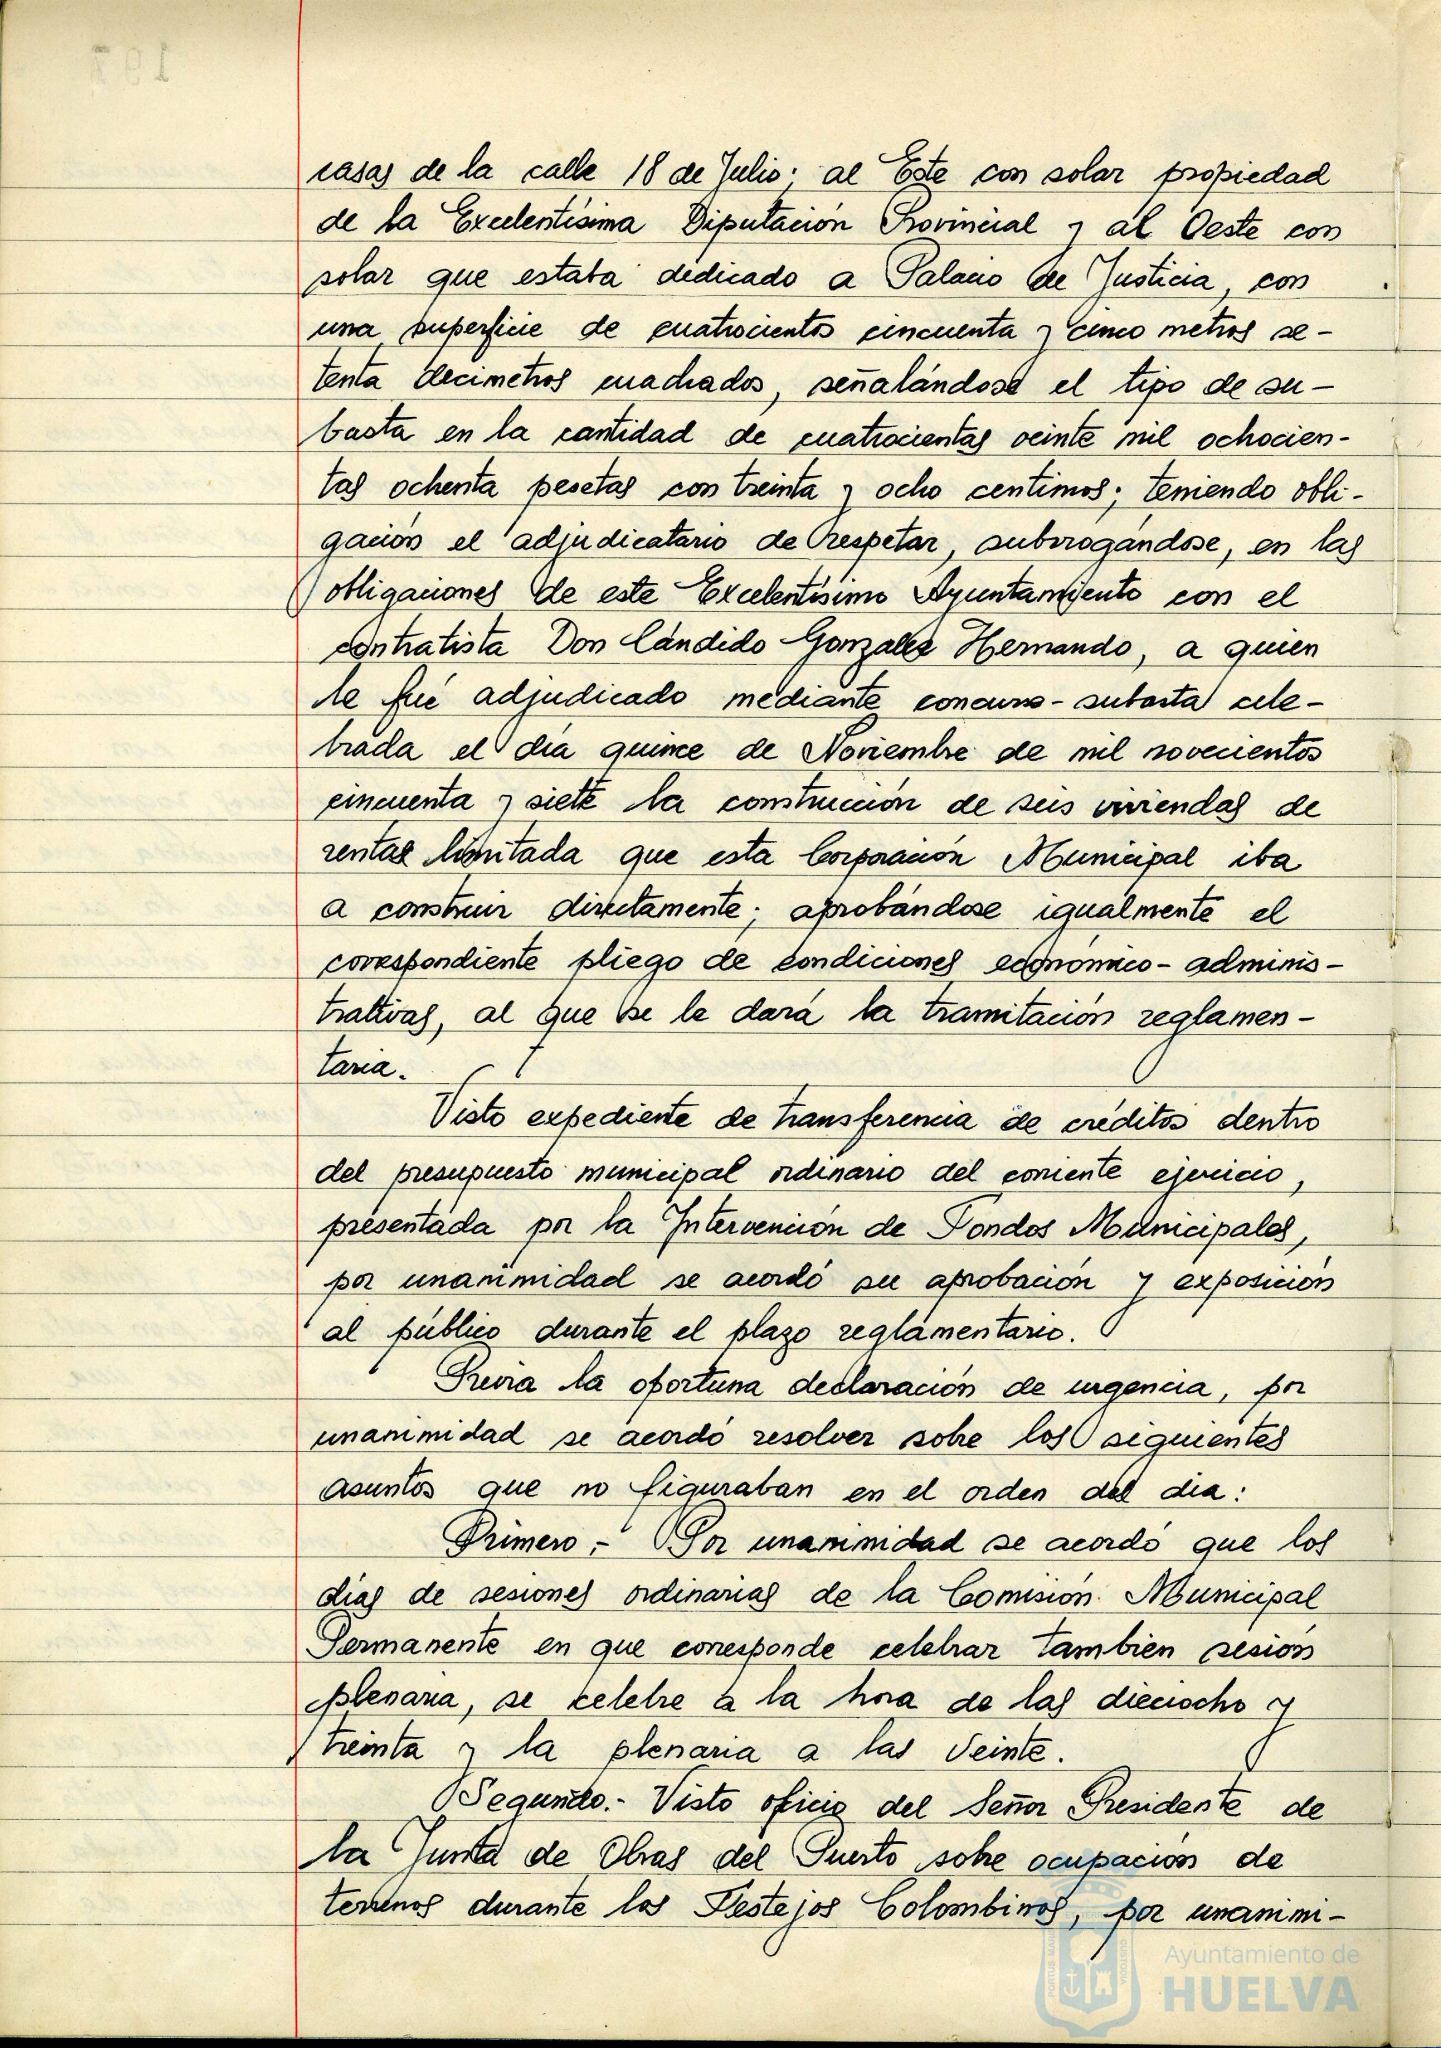 casas de la calle 18 de Julio; al Este con solar propiedad
de la Excelentísima Diputación Provincial y al Oeste con
solar que estaba dedicado a Palacio de Justicia, con
una superficie de cuatrocientos cincuenta y cinco metros se-
tenta decimetros cuadrados, señalándose el tipo de su-
basta en la cantidad de cuatrocientas veinte mil ochocien-
tas ochenta pesetas con treinta y ocho centimos; teniendo obli-
gación el adjudicatario de respetar, subrogándose, en las
obligaciones de este Excelentísimo Ayuntamiento con el
contratista Don Cándido Gonzalez Hernando, a quien
le fué adjudicado mediante concurso-subasta cele-
brada el día quince de Noviembre de mil novecientos
cincuenta y siete la construcción de seis viviendas de
renta limitada que esta Corporación Municipal iba
a construir directamente; aprobándose igualmente el
correspondiente pliego de condiciones económico-adminis-
trativas, al que se le dará la tramitación reglamen-
taria.
Visto expediente de transferencia de créditos dentro
del presupuesto municipal ordinario del corriente ejercicio,
presentada por la Intervención de Fondos Municipales,
por unanimidad se acordó su aprobación y exposición
al público durante el plazo reglamentario.
Previa la oportuna declaración de urgencia, por
unanimidad se acordó resolver sobre los siguientes
asuntos que no figuraban en el orden del dia:
Primero.- Por unanimidad se acordó que los
días de sesiones ordinarias de la Comisión Municipal
Permanente en que corresponde celebrar tambien sesión
plenaria, se celebre a la hora de las dieciocho y
treinta y la plenaria a las veinte.
Segundo.- Visto oficio del Señor Presidente de
la Junta de Obras del Puerto sobre ocupación de
terrenos durante los Festejos Colombinos, por unanimi-
Ayuntamiento de
HUELVA